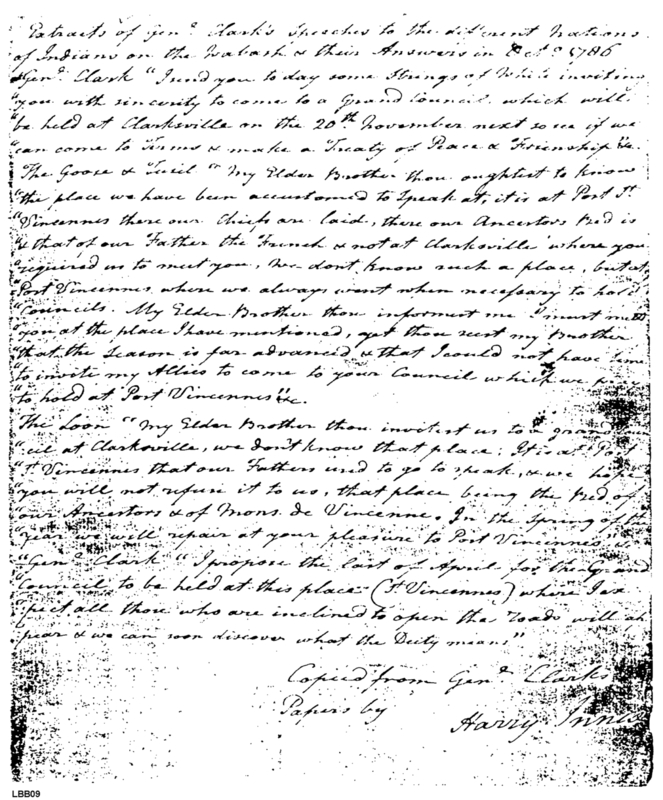 Extracts of Genl. Clark's Speeches to the different Nations
of Indians on the Wabash & their Answers in Octr. 1786
Genl. Clark "I send you to day some Strings of White inviting
"you with sincerity to come to a Grand Council which will
"be held at Clarksville on the 20th November next to see if we
"can come to Terms & make a Treaty of Peace & Frienship &c.
The Goose & "My Elder Brother thou oughtest to know
"the place we have been accustomed to Speak at, it is at Port St.
"Vincennes there our Chiefs are laid, there our Ancestors Bed is
"& that of our Father the French & not at Clarksville where you
"required us to meet you, We dont know such a place, but at
"Post Vincennes where we always went when necessary to hold
"Councils. My Elder Brother thou informest me I must meet
"you at the place I have mentioned, yet thou seest my Brother
"that the Season is far advanced & that I could not have time
"to invite my Allies to come to your Council which we
"to hold at Port Vincennes" &c.
The Loon "My Elder Brother thou invitest us to a grand Coun
"cil at Clarksville, we don't know that place; It is at Port
"St. Vincennes that our Fathers used to go to speak, & we hope
"you will not refuse it to us, that place being the Bed of
"our Ancestors & of Mons. de Vincenne. In the Spring of the
"year we will repair at your pleasure to Port Vincennes"
"Genl. Clark "I propose the last of April for the Grand
"Council to be held at this place (St. Vincennes) where I ex
"pect all those who are inclined to open the roads will ap
"pear & we can soon discover what the Deity means"
Copied from Genl. Clarks
Papers by
Harry Innes
LBB09